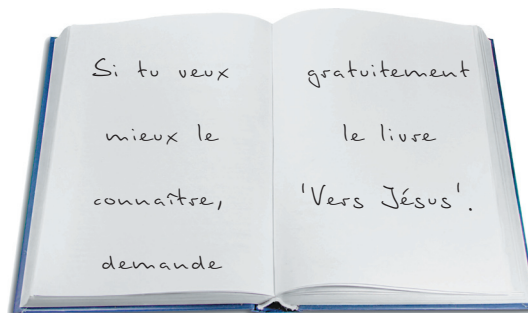 Si tu veux
mieux le
connaître,
demande
gratuitement
le livre
'Vers Jésus'.